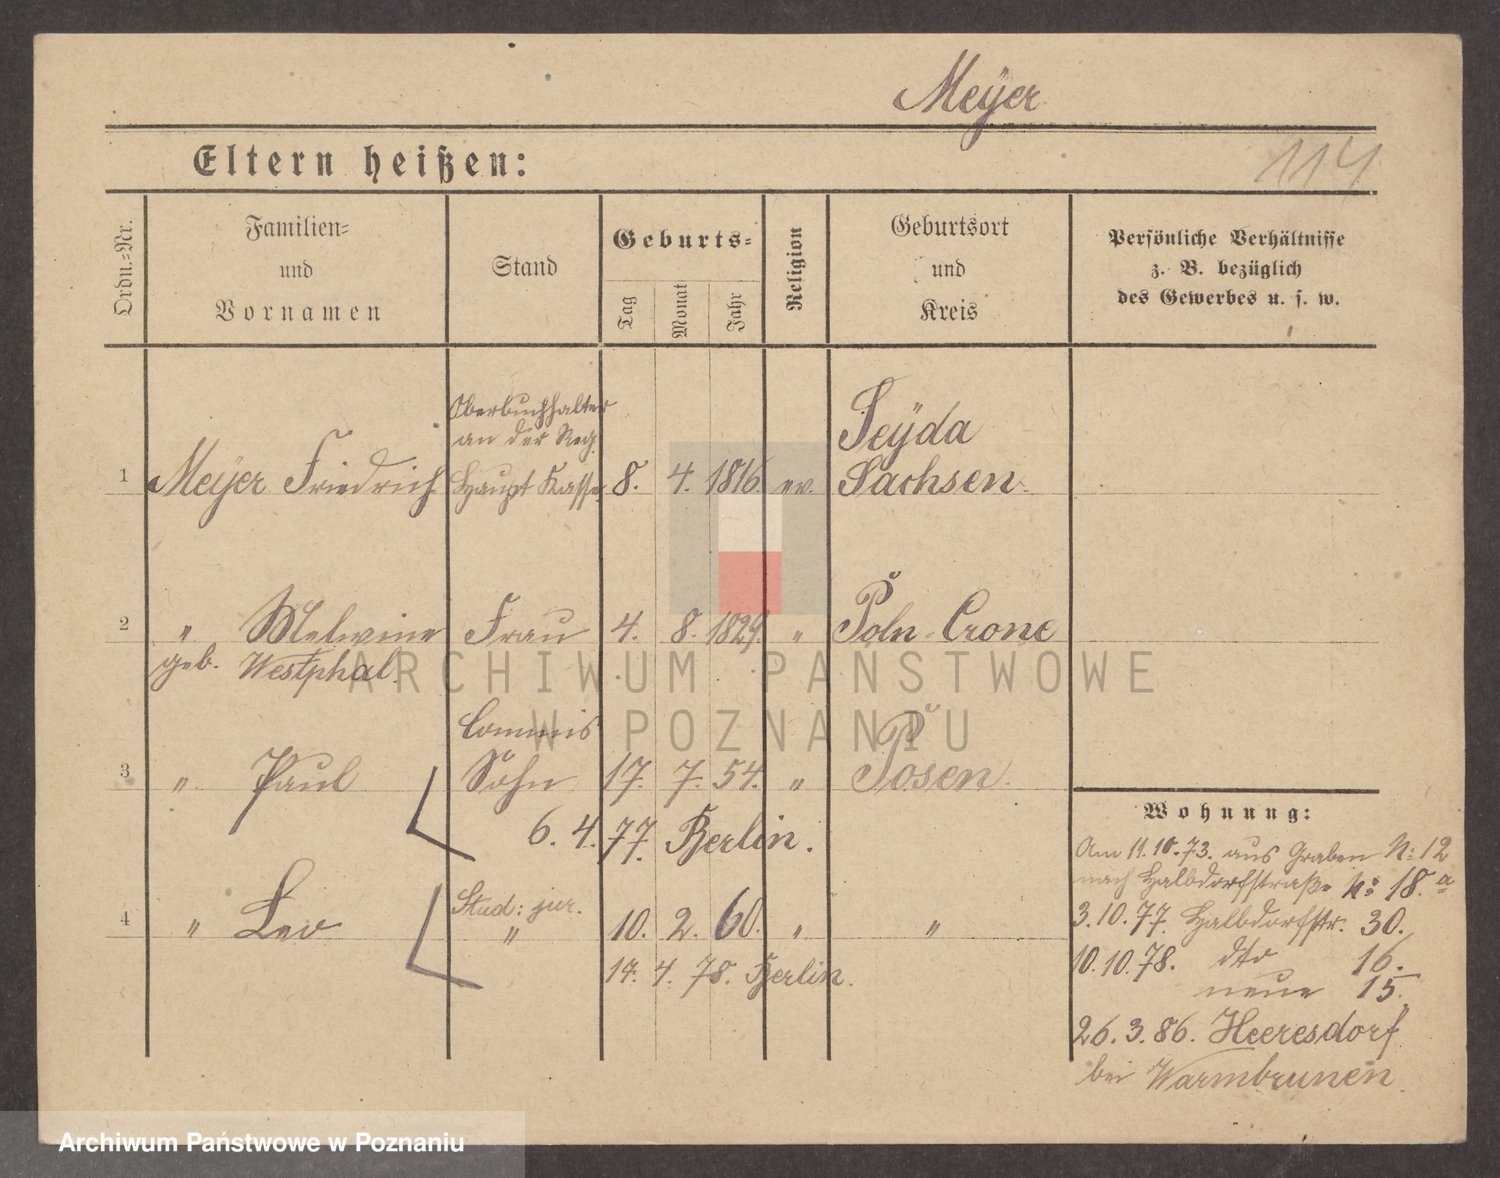 Meÿer
Eltern heißen:
114
Ordn.-Nr.
Familien-
und
Vornamen
Stand
Geburts-
Tag
Monat
Jahr
Religion
Geburtsort
und
Kreis
Persönliche Verhältnisse
z. B. bezüglich
des Gewerbes u. s. w.
Oberbuchhalter
an der Reg.
1 Meÿer Friedrich Haupt Kasse 8. 4. 1816. ev. Seÿda
Sachsen
2 " Melwine Frau 4. 8. 1829. " Poln-Crone
geb. Westphal.
ARCHIWUM PAŃSTWOWE
W POZNANIU
Commis
3 " Paul Sohn 17. 7. 54. " Posen.
6. 4. 77. Berlin.
Stud: jur.
4 " Leo " 10. 2. 60. " "
14. 4. 78. Berlin.
Wohnung:
Am 11.10.73. aus Graben N: 12
nach Halbdorfstraße No 18.a
3.10.77. Halbdorfstr. 30.
10.10.78. dto 16.
neue 15.
26.3.86. Heeresdorf
bei Warmbrunen
Archiwum Państwowe w Poznaniu